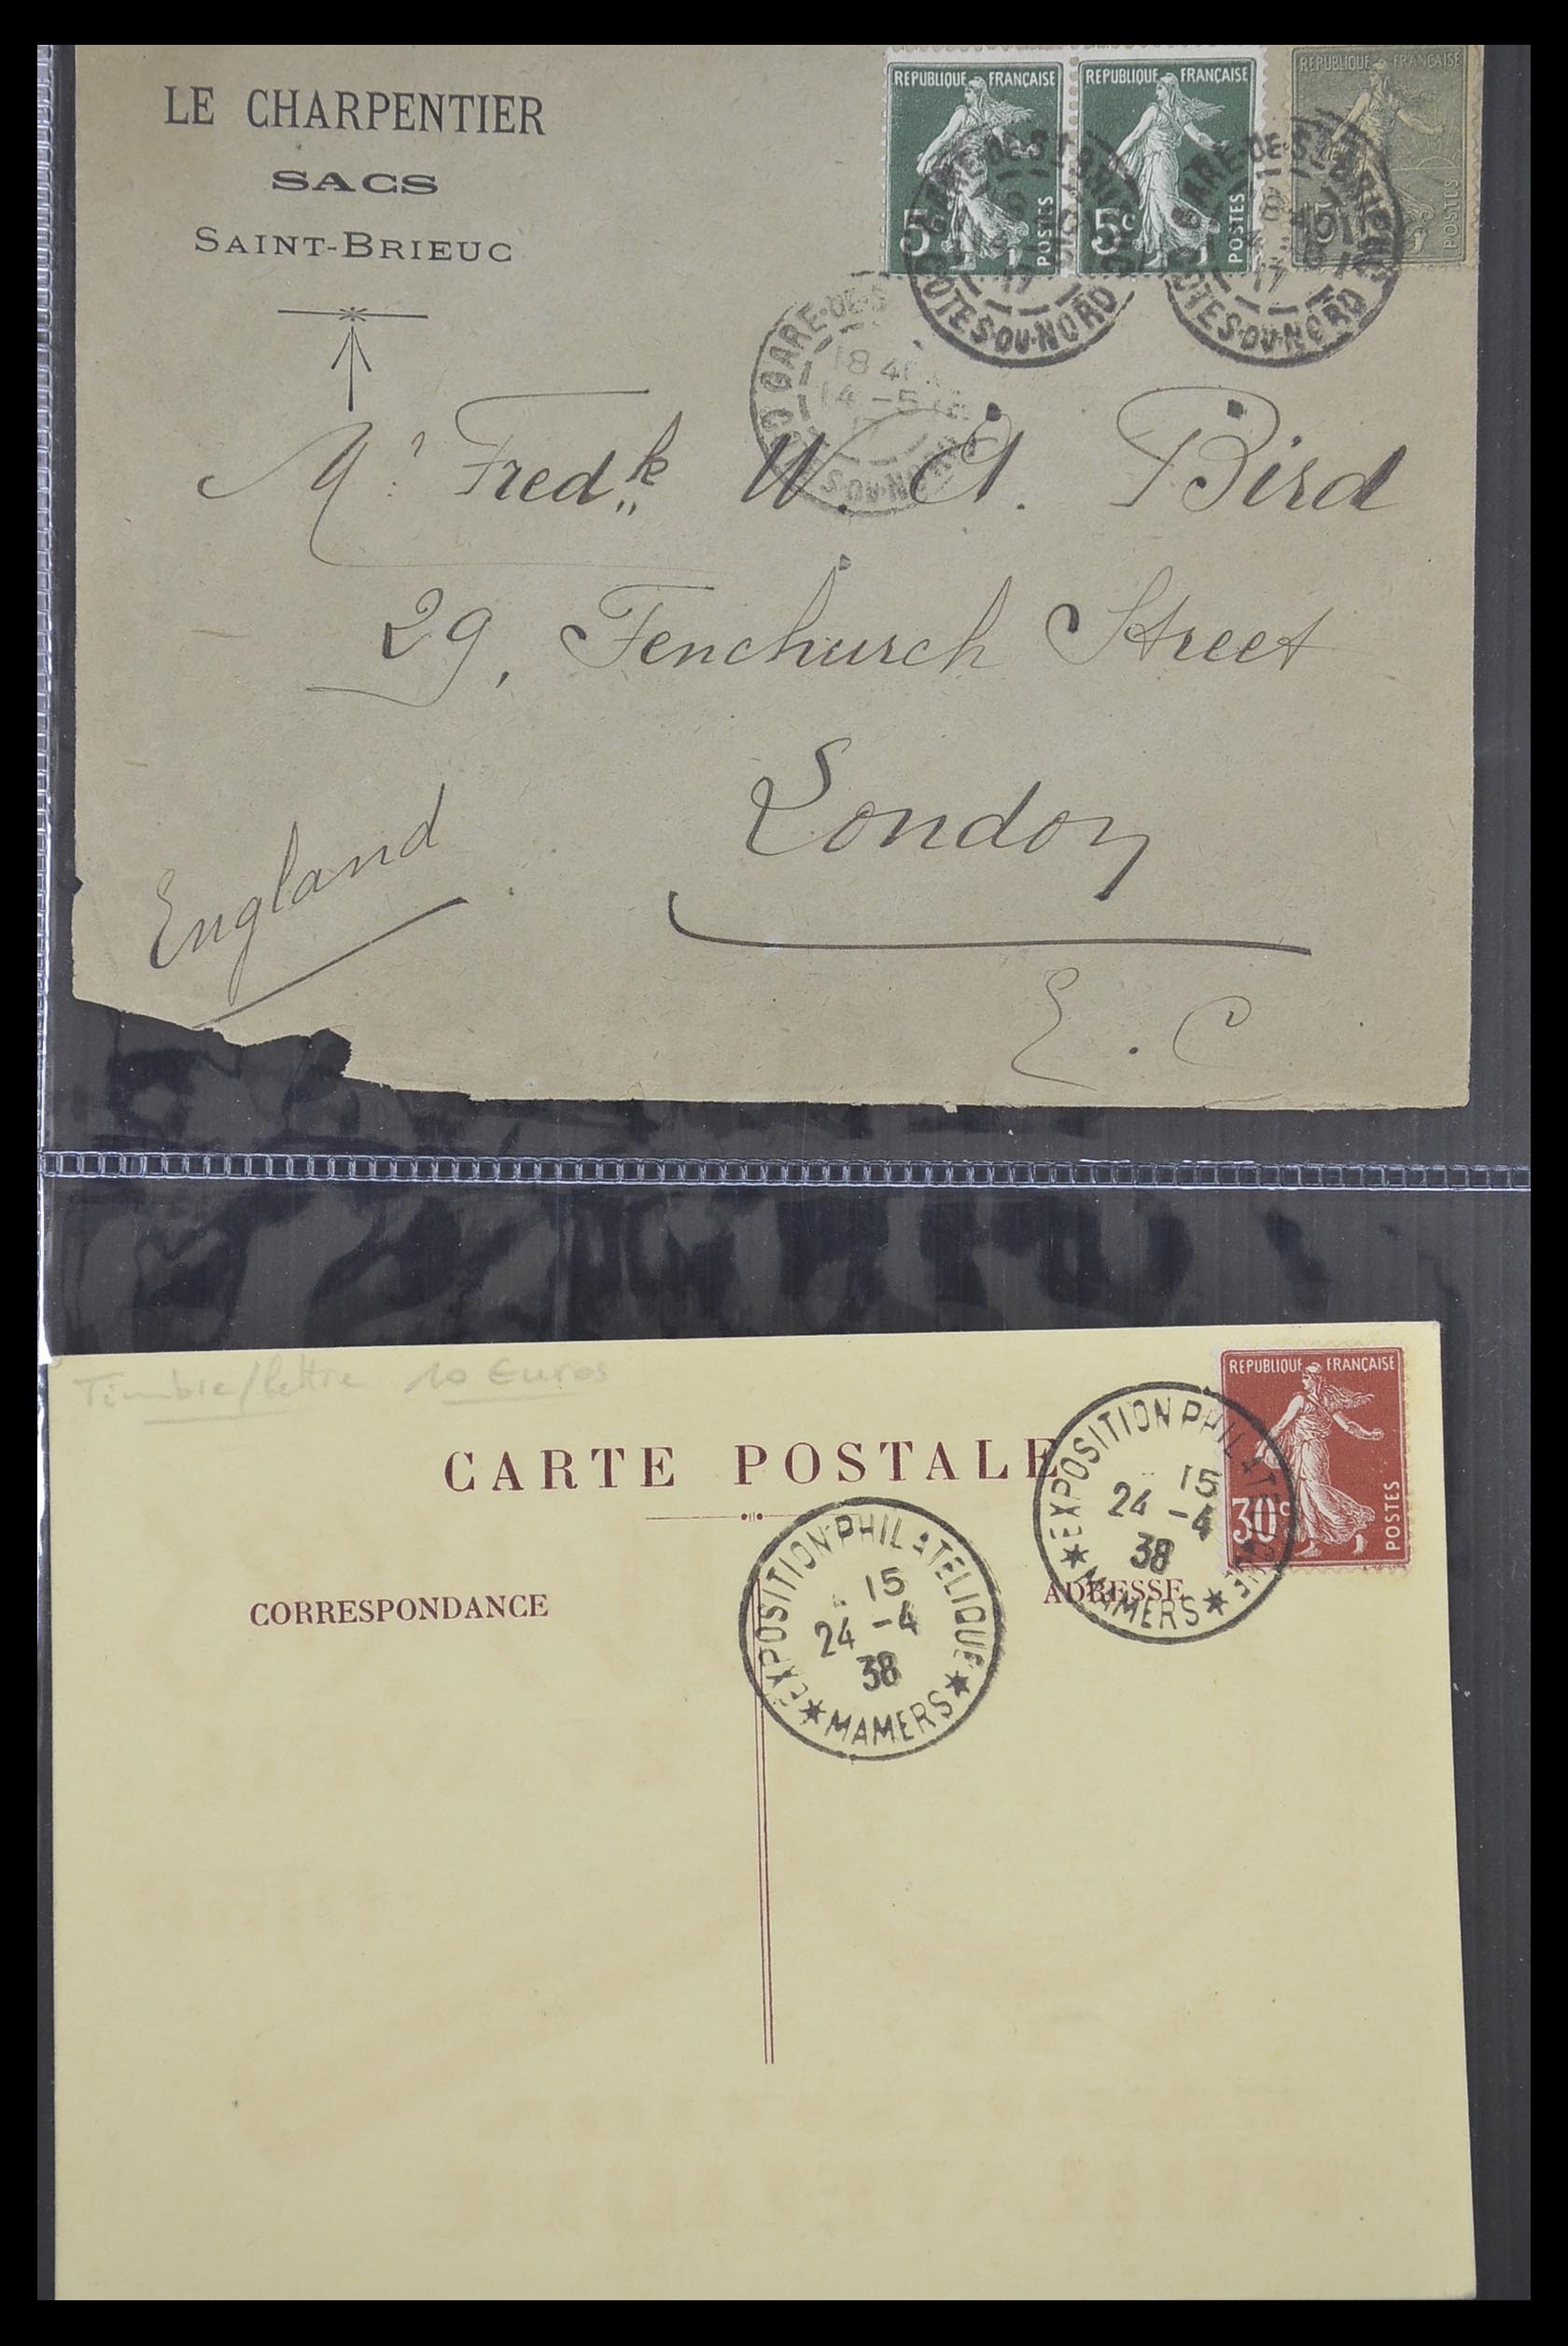 LE CHARPENTIER
SACS
SAINT-BRIEUC
REPUBLIQUE FRANÇAISE
5c
POSTES
REPUBLIQUE FRANÇAISE
5c
POSTES
REPUBLIQUE FRANÇAISE
15c
POSTES
GARE-DE-ST BRIEUC
17
COTES-DU-NORD
GARE-DE-ST BRIEUC
17
COTES-DU-NORD
GARE-DE-S
18 40
14 -5
17
COTES-DU-NORD
Mr Fredk W. A. Bird
29, Fenchurch Street
London
England
E. C.
Timbre/lettre 10 Euros
CARTE POSTALE
CORRESPONDANCE
ADRESSE
REPUBLIQUE FRANÇAISE
30c
POSTES
EXPOSITION PHILATELIQUE
15
24 -4
38
MAMERS
EXPOSITION PHILATELIQUE
15
24 -4
38
MAMERS